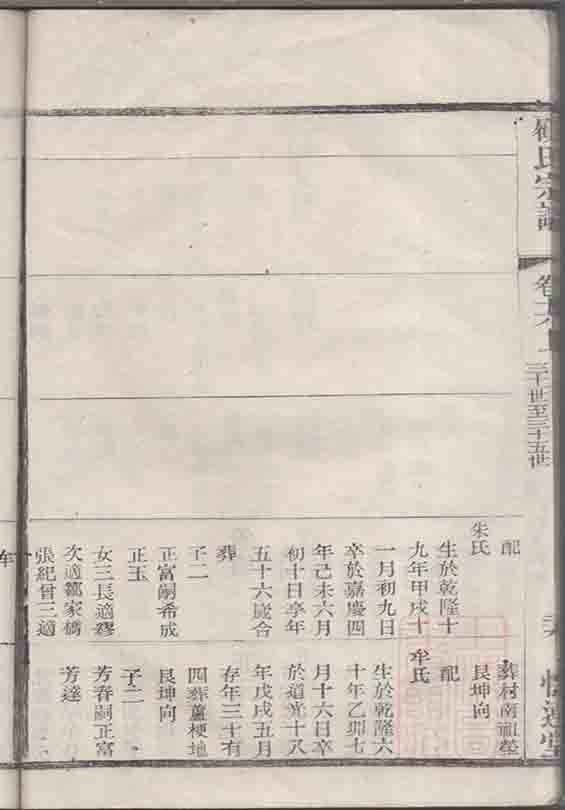 氏宗譜
三十世至三十五世
配
朱氏
生於乾隆十
九年甲戌十
一月初九日
卒於嘉慶四
年己未六月
初十日享年
五十六歲合
葬
子二
正富嗣希成
正玉
女三長適繆
次適鄒家橋
張紀曾三適
葬村南祖塋
艮坤向
配
牟氏
生於乾隆六
十年乙卯七
月十六日卒
於道光十八
年戊戌五月
存年三十有
四葬蘆梗地
艮坤向
子二
芳春嗣正富
芳達